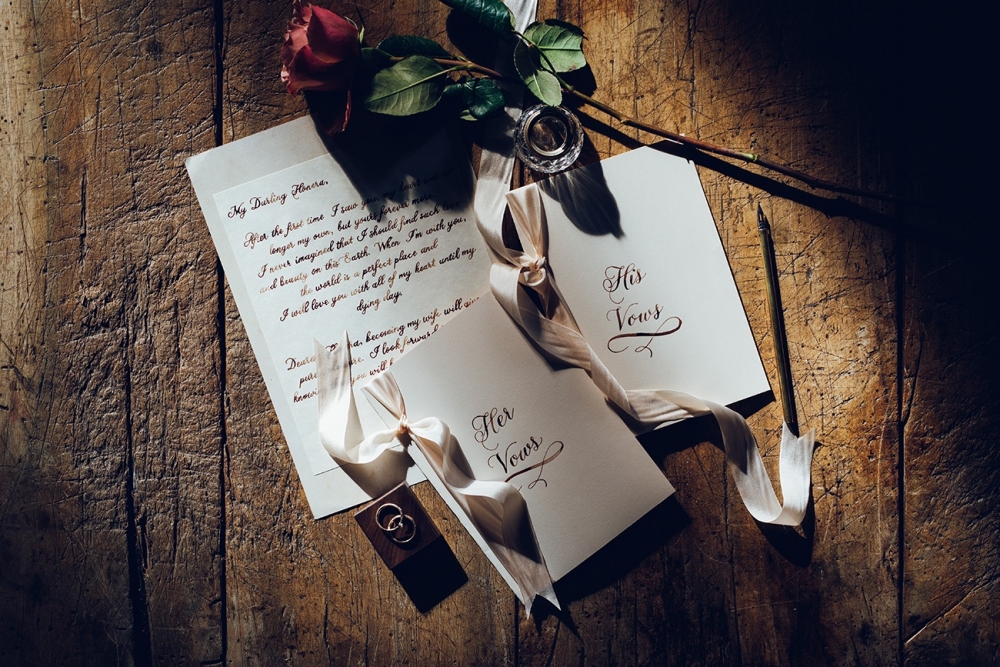 My Darling Honora,
After the first time I saw you, my heart was no
longer my own, but yours forever more.
I never imagined that I should find such love
and beauty on this Earth. When I'm with you,
the world is a perfect place and
I will love you with all of my heart until my
dying day.
becoming my wife will give
I look forward
you will
His
Vows
Her
Vows